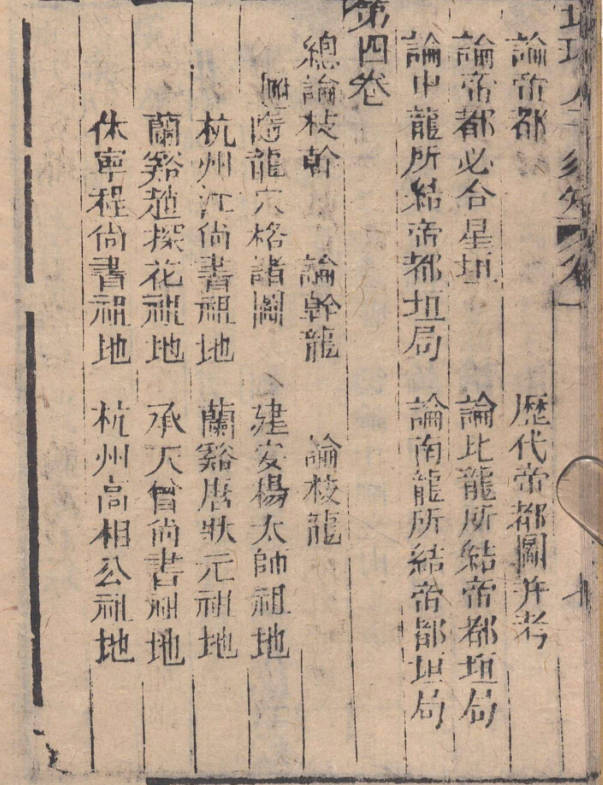 地理人子須知 卷一
論帝都 歷代帝都圖并考
論帝都必合星垣 論北龍所結帝都垣局
論中龍所結帝都垣局 論南龍所結帝都垣局
第四卷
總論枝幹 論幹龍 論枝龍
附隨龍穴格諸圖 建安楊太師祖地
杭州江尚書祖地 蘭谿唐狀元祖地
蘭谿趙探花祖地 承天曾尚書祖地
休寧程尚書祖地 杭州高相公祖地